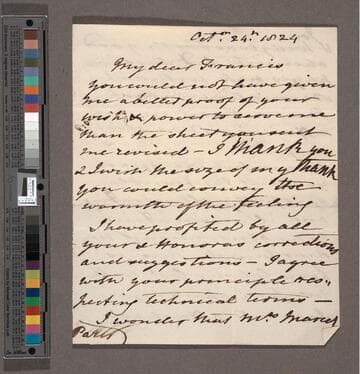 Oct.r 24th 1824
My dear Francis
you could not have given
me a better proof of your
wish & power to serve me
than the sheet you sent
me revised – I thank you
& I wish the size of my thank
you could convey the
warmth of the feeling
I have profited by all
your & Honoras corrections
and suggestions – I agree
with your principle res-
pecting technical terms –
I wonder that Mrs Marcet